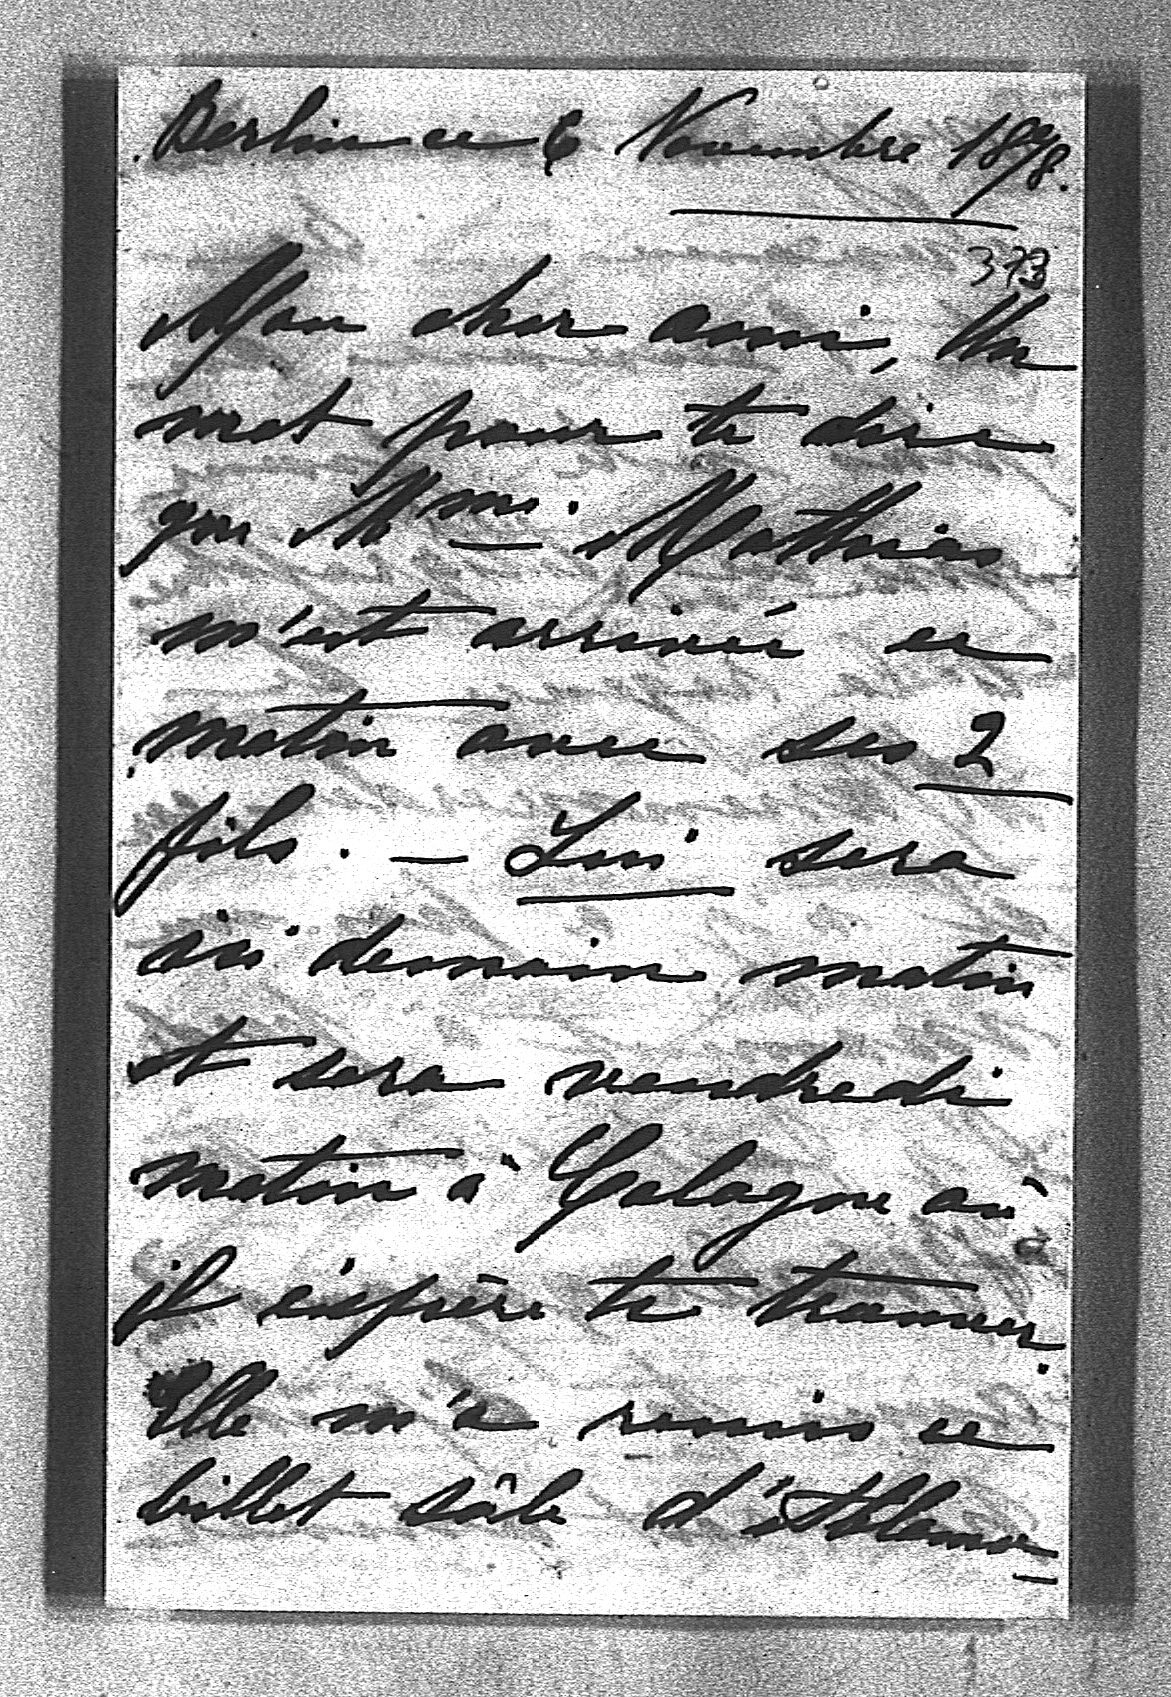 Berlin ce 6 Novembre 1898.
373
Mon cher ami, Un
mot pour te dire
que Mme. Mathias
m'est arrivée ce
matin avec ses 2
fils. — Lui sera
ici demain matin
et sera vendredi
matin à Cologne où
il éspère te trouver.
Elle m'a remis ce
billet sâle